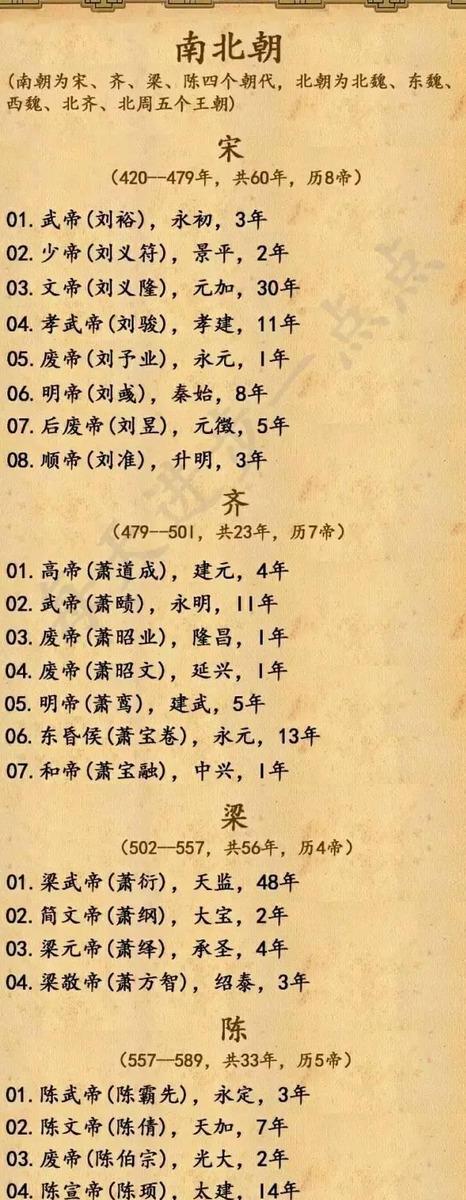 南北朝
(南朝为宋、齐、梁、陈四个朝代，北朝为北魏、东魏、
西魏、北齐、北周五个王朝)
宋
(420--479年，共60年，历8帝)
01.武帝(刘裕)，永初，3年
02.少帝(刘义符)，景平，2年
03.文帝(刘义隆)，元加，30年
04.孝武帝(刘骏)，孝建，11年
05.废帝(刘予业)，永元，1年
06.明帝(刘彧)，秦始，8年
07.后废帝(刘昱)，元微，5年
08.顺帝(刘准)，升明，3年
齐
(479--501，共23年，历7帝)
01.高帝(萧道成)，建元，4年
02.武帝(萧赜)，永明，11年
03.废帝(萧昭业)，隆昌，1年
04.废帝(萧昭文)，延兴，1年
05.明帝(萧鸾)，建武，5年
06.东昏侯(萧宝卷)，永元，13年
07.和帝(萧宝融)，中兴，1年
梁
(502--557，共56年，历4帝)
01.梁武帝(萧衍)，天监，48年
02.简文帝(萧纲)，大宝，2年
03.梁元帝(萧绎)，承圣，4年
04.梁敬帝(萧方智)，绍泰，3年
陈
(557--589，共33年，历5帝)
01.陈武帝(陈霸先)，永定，3年
02.陈文帝(陈倩)，天加，7年
03.废帝(陈伯宗)，光大，2年
04.陈宣帝(陈顼)，太建，14年